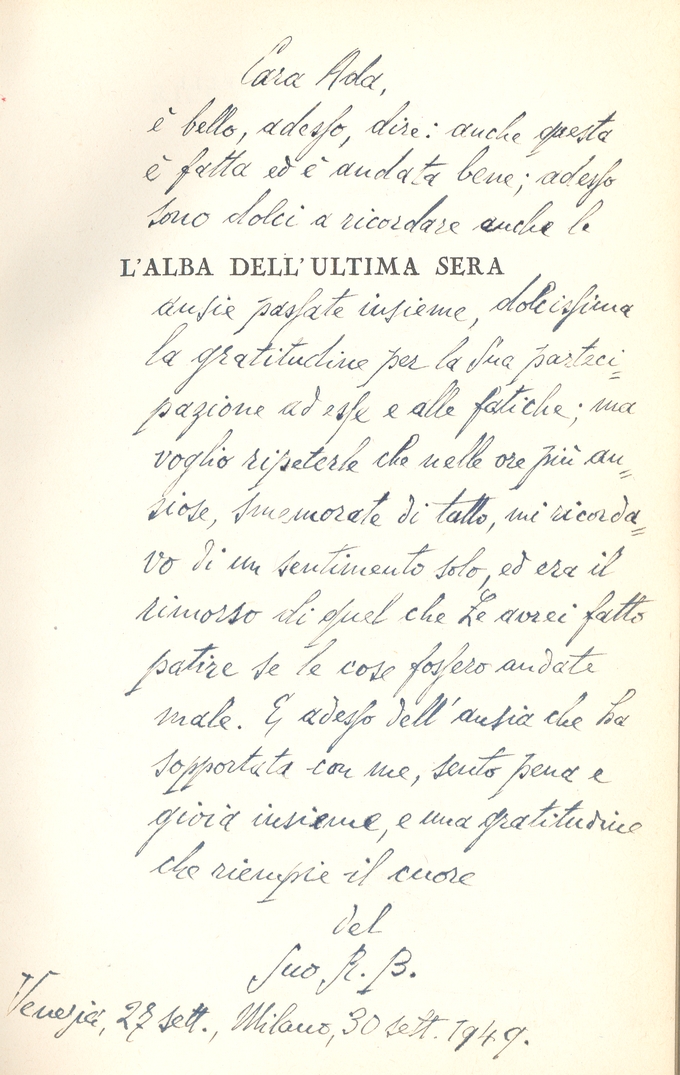 Cara Ada,
è bello, adesso, dire: anche questa
è fatta ed è andata bene; adesso
sono dolci a ricordare anche le
L'ALBA DELL'ULTIMA SERA
ansie passate insieme, dolcissima
la gratitudine per la Sua parteci=
pazione ad esse e alle fatiche; ma
voglio ripeterle che nelle ore più an=
siose, smemorate di tutto, mi ricorda=
vo di un sentimento solo, ed era il
rimorso di quel che Le avrei fatto
patire se le cose fossero andate
male. E, adesso dell'ansia che ha
sopportata con me, sento pena e
gioia insieme, e una gratitudine
che riempie il cuore
del
Suo R. B.
Venezia, 27 sett., Milano, 30 sett. 1949.